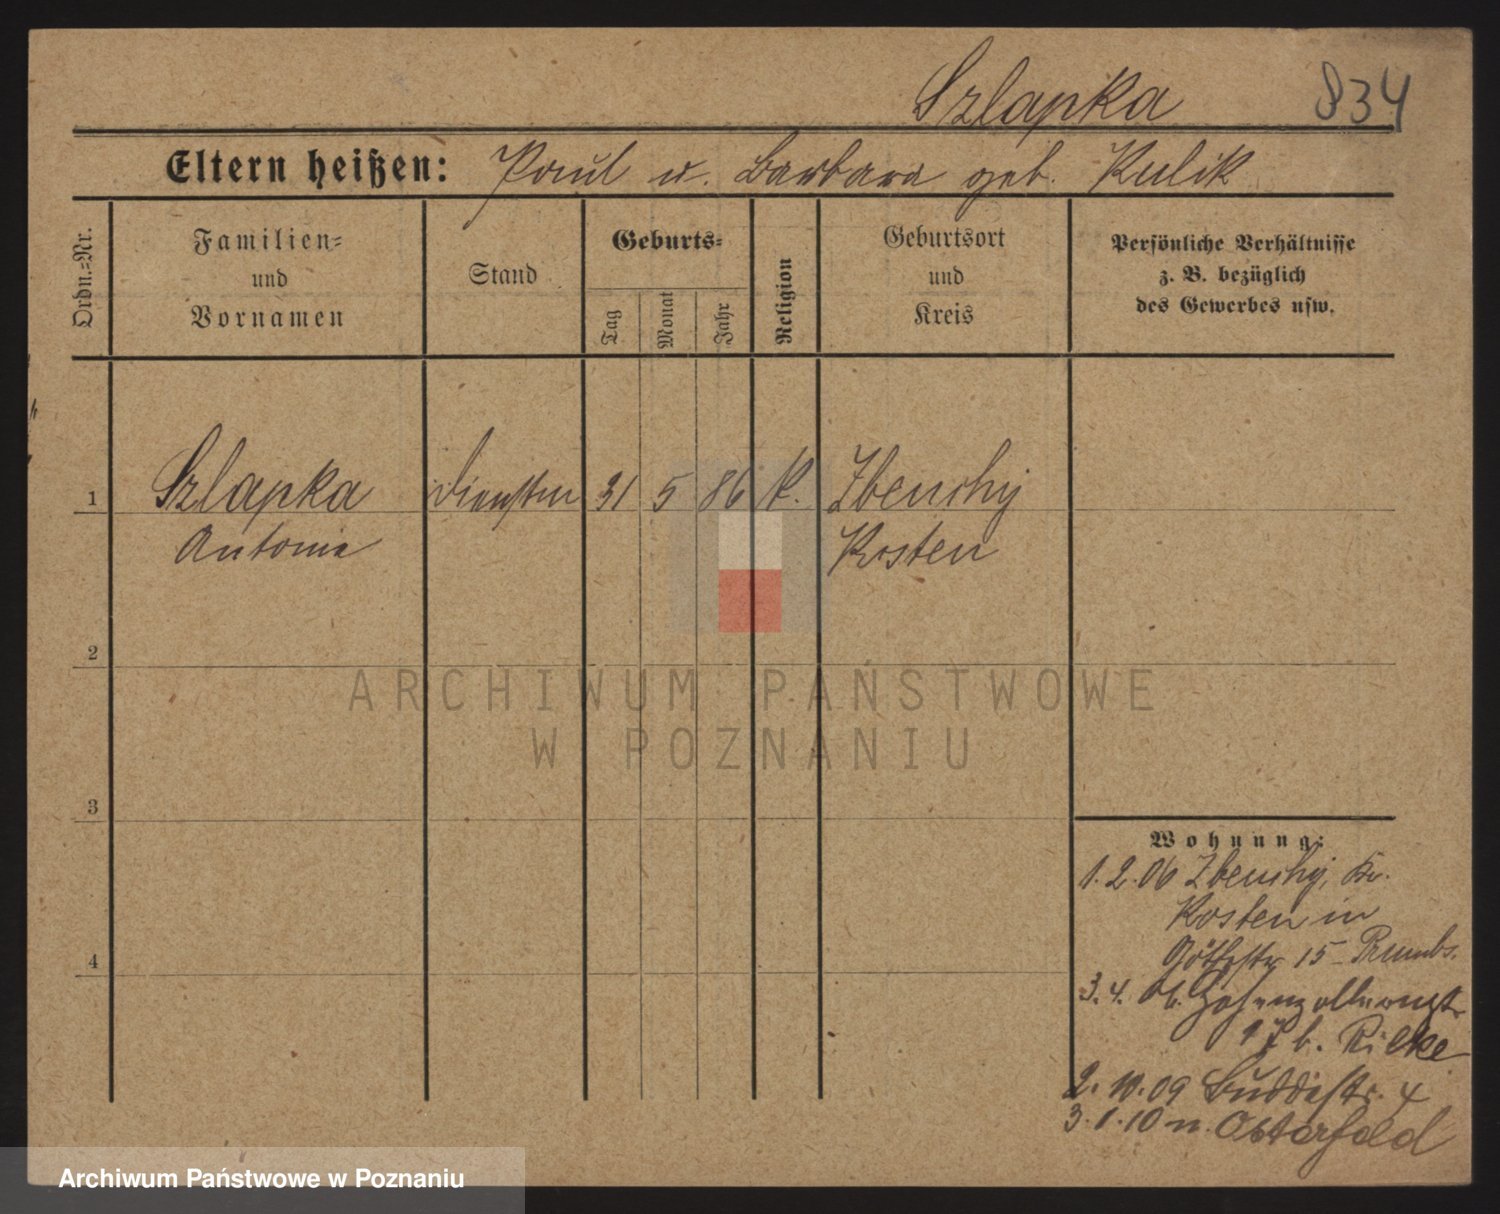 Szlapka 834
Eltern heißen: Paul u. Barbara geb. Kulik
Ordn.=Nr.
Familien=
und
Vornamen
Stand
Geburts=
Tag
Monat
Jahr
Religion
Geburtsort
und
Kreis
Persönliche Verhältnisse
z. B. bezüglich
des Gewerbes usw.
1 Szlapka 31 5 86 K. Zbenchy
Antonie Kosten
2
3
4
Wohnung:
1.2.06 Zbenchy, Kr.
Kosten in
15
3.4.06. Hohenzollernstr
17 b. Rilke
2.10.09 Buddestr. 4
3.1.10 n. Osterfeld
ARCHIWUM PAŃSTWOWE
W POZNANIU
Archiwum Państwowe w Poznaniu